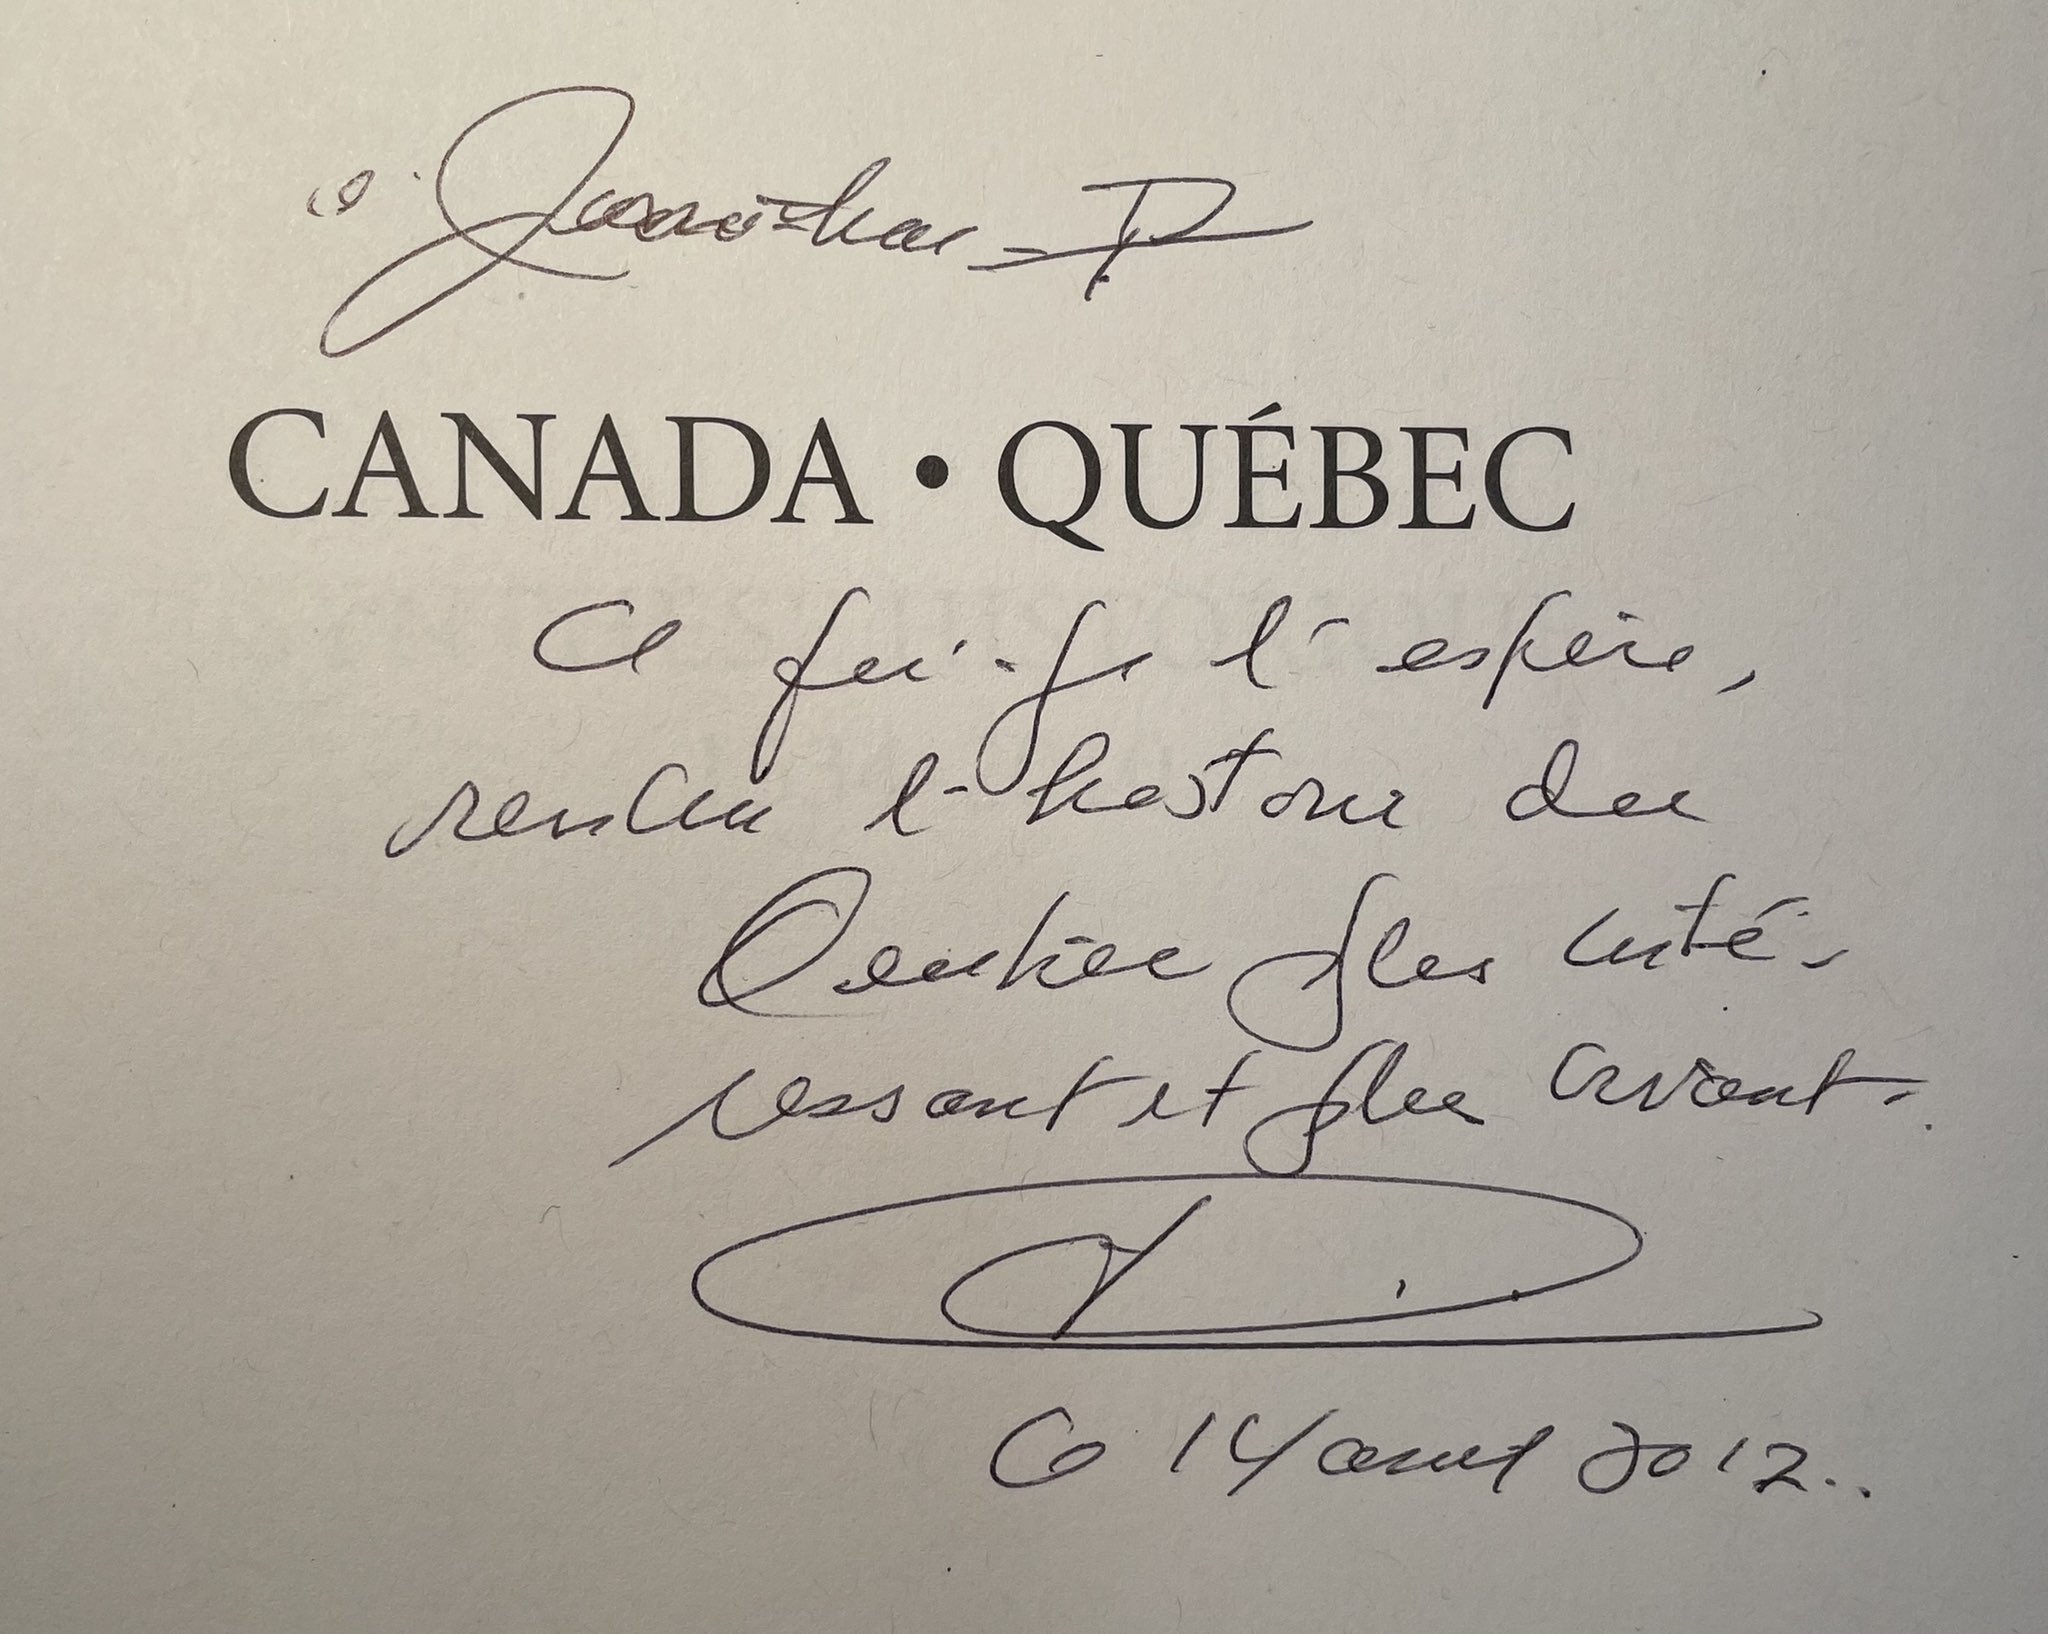 à Jonathan P.
CANADA • QUÉBEC
Ce qui, je l'espère,
rendra l'histoire du
Québec plus inté-
ressant et plus vivant.
Le 14 août 2012..